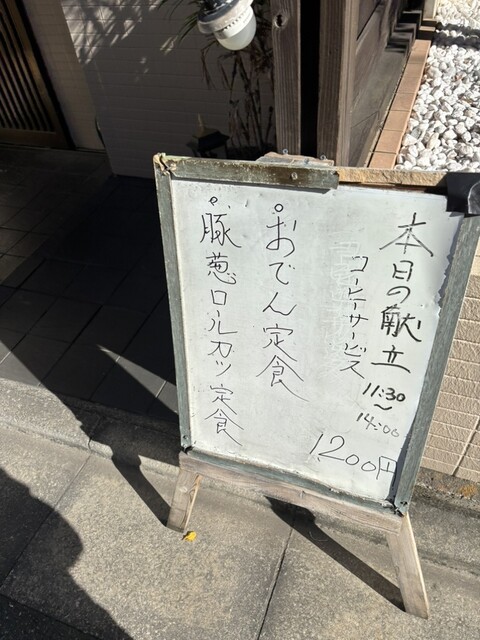 本日の献立
11:30
～
14:00
コーヒーサービス
1,200円
おでん定食
豚葱ロールカツ定食